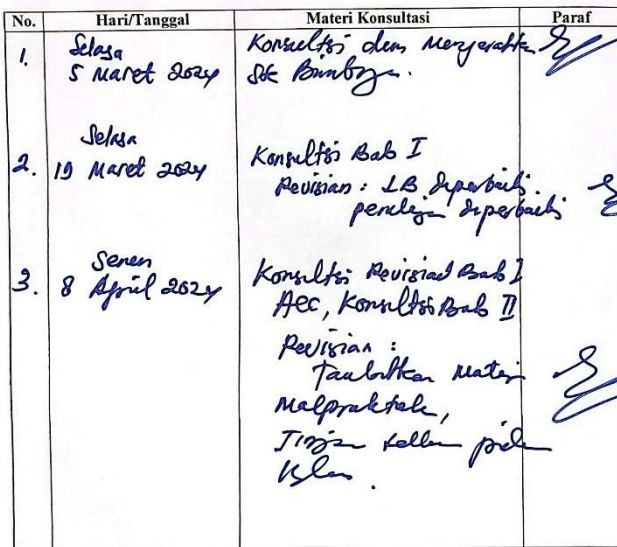 No. Hari/Tanggal Materi Konsultasi Paraf
1. Selasa Konsultsi dan Menyerahkan
5 Maret 2024 SK Bimbingan.
Selasa
2. 19 Maret 2024 Konsultsi Bab I
Revisian : LB diperbaiki
diperbaiki
Senen
3. 8 April 2024 Konsultsi Revisian Bab I
Acc, Konsultsi Bab II
Revisian :
Tambahkan Materi
Malpraktek,